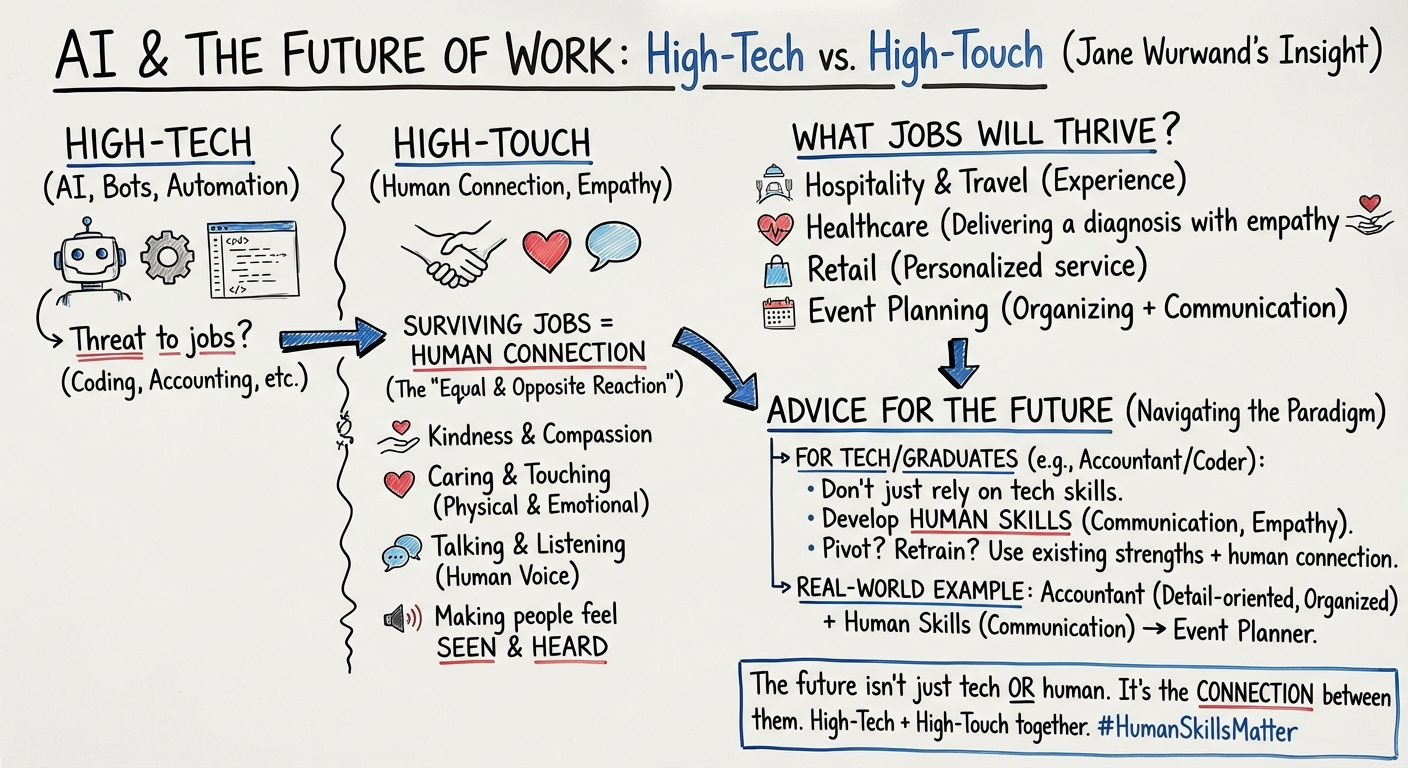 AI & THE FUTURE OF WORK: High-Tech vs. High-Touch (Jane Wurwand's Insight)
HIGH-TECH
(AI, Bots, Automation)
<pd>
</>
Threat to jobs?
(Coding, Accounting, etc.)
HIGH-TOUCH
(Human Connection, Empathy)
SURVIVING JOBS =
HUMAN CONNECTION
(The "Equal & Opposite Reaction")
Kindness & Compassion
Caring & Touching
(Physical & Emotional)
Talking & Listening
(Human Voice)
Making people feel
SEEN & HEARD
WHAT JOBS WILL THRIVE?
Hospitality & Travel (Experience)
Healthcare (Delivering a diagnosis with empathy
Retail (Personalized service)
Event Planning (Organizing + Communication)
ADVICE FOR THE FUTURE (Navigating the Paradigm)
FOR TECH/GRADUATES (e.g., Accountant/Coder):
• Don't just rely on tech skills.
• Develop HUMAN SKILLS (Communication, Empathy).
• Pivot? Retrain? Use existing strengths + human connection.
REAL-WORLD EXAMPLE: Accountant (Detail-oriented, Organized)
+ Human Skills (Communication) → Event Planner.
The future isn't just tech OR human. It's the CONNECTION between
them. High-Tech + High-Touch together. #HumanSkillsMatter